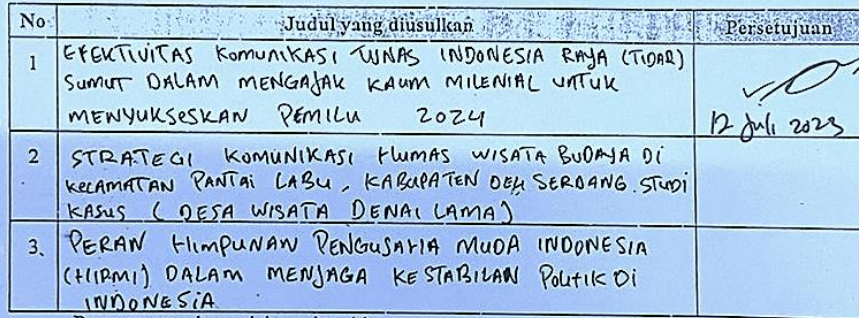 No Judul yang diusulkan Persetujuan
1 EFEKTIVITAS KOMUNIKASI TUNAS INDONESIA RAYA (TIDAR)
SUMUT DALAM MENGAJAK KAUM MILENIAL UNTUK
MENYUKSESKAN PEMILU 2024
12 Juli 2023
2 STRATEGI KOMUNIKASI HUMAS WISATA BUDAYA DI
KECAMATAN PANTAI LABU, KABUPATEN DELI SERDANG. STUDI
KASUS (DESA WISATA DENAI LAMA)
3. PERAN HIMPUNAN PENGUSAHA MUDA INDONESIA
(HIPMI) DALAM MENJAGA KESTABILAN POLITIK DI
INDONESIA